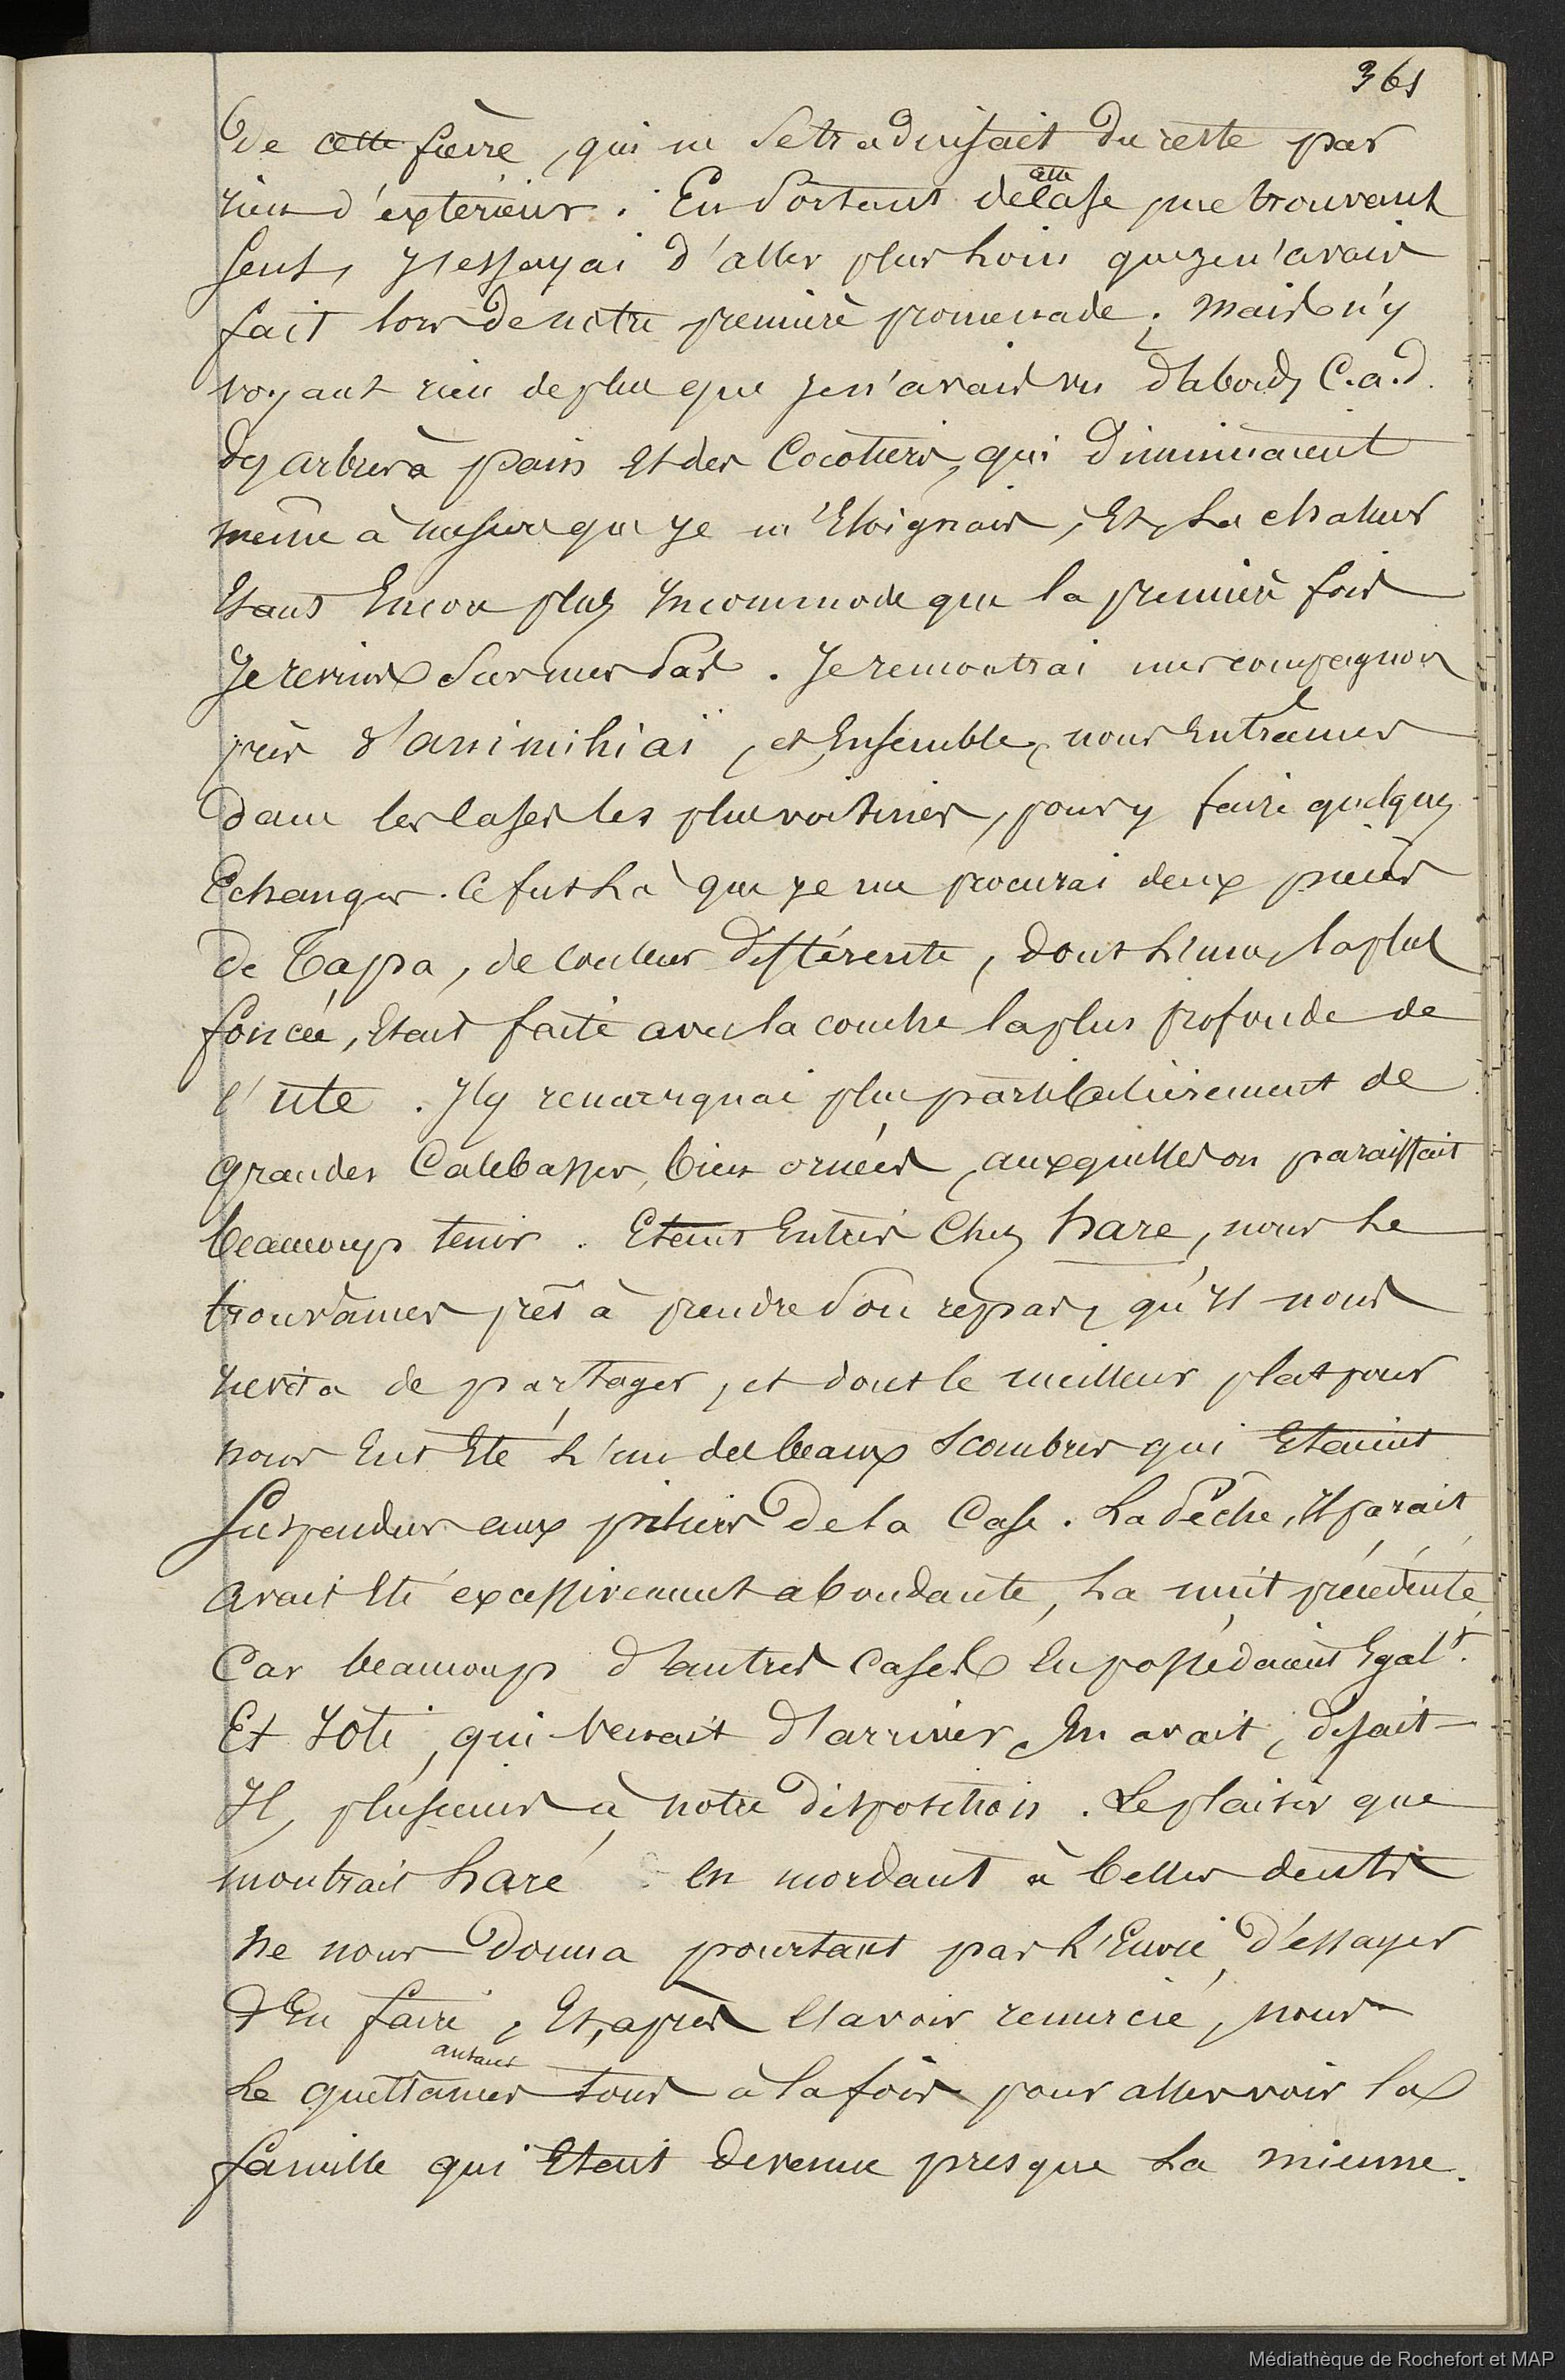 361
de cette fièvre, qui ne se traduisait du reste par
rien d'extérieur. En sortant de cette case, me trouvant
seul, j'essayai d'aller plus loin que je n'avais
fait lors de notre première promenade; mais n'y
voyant rien de plus que je n'avais vu d'abord, C.a.d.
des arbres à pain et des Cocotiers, qui diminuaient
même à mesure que je m'Eloignais, Et, La chaleur
Etant Encore plus Incommode que la première fois
Je revins sur mes pas. Je remontrai mes compagnons
près d'animihiaï, et, Ensemble, nous Entrâmes
dans les Cases les plus voisines, pour y faire quelques
Echanges. Ce fut Là que je me procurai deux pièces
de Tapa, de Couleur différente, dont L'une, la plus
foncée, Etait faite avec la couche la plus profonde de
l'ute. J'y remarquai plus particulièrement de
grandes Calebasses, bien ornées, auxquelles on paraissait
beaucoup tenir. Etant Entrés Chez hare, nous Le
trouvâmes prêt à prendre son repas, qu'Il nous
Invita de partager, et dont le meilleur plat pour
nous Eut Eté L'un des beaux Scombres qui Etaient
suspendus aux piliers de la Case. La Pêche, Il parait
avait Eté excessivement abondante, La nuit précédente,
Car beaucoup d'autres Cases En possédaient Egalt.
Et Ioti, qui venait d'arriver, En avait, disait-
Il, plusieurs à notre disposition. Le plaisir que
montrait haré En mordant à belles dents
ne nous donna pourtant pas L'Envie d'essayer
d'En faire autant, Et, après l'avoir remercié, nous
Le quittâmes tous à la fois pour aller voir la
famille qui Etait devenue presque La mienne.
Médiathèque de Rochefort et MAP